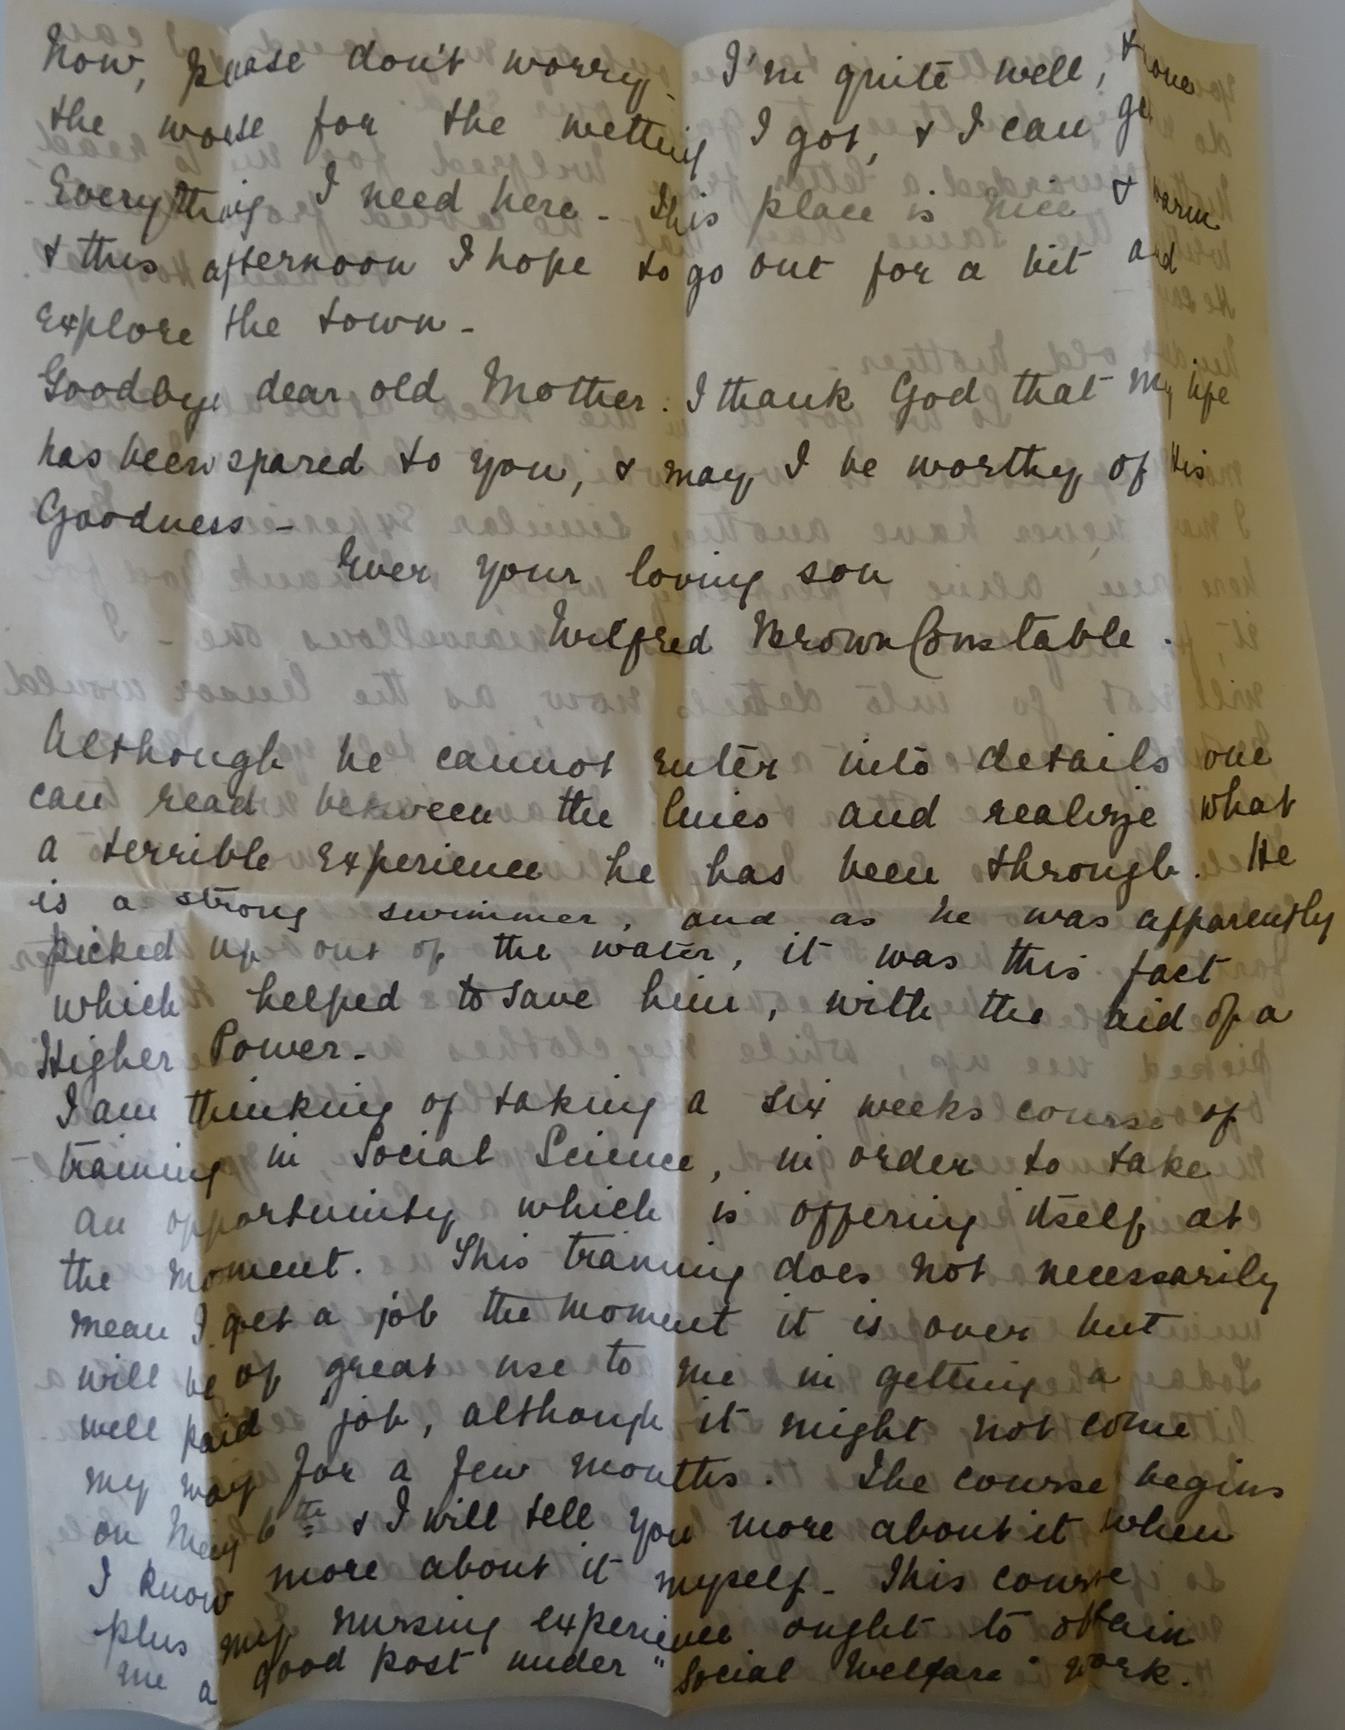 Now, please don't worry. I'm quite well, & none
the worse for the wetting I got, & I can get
Everything I need here - This place is nice & warm
& this afternoon I hope to go out for a bit and
Explore the town -
Goodbye dear old Mother. I thank God that my life
has been spared to you, & may I be worthy of His
Goodness -
Ever your loving son
Wilfred Brown Constable.
Although he cannot enter into details one
can read between the lines and realize what
a terrible experience he has been through. He
is a strong swimmer, and as he was apparently
picked up out of the water, it was this fact
which helped to save him, with the aid of a
Higher Power -
I am thinking of taking a six weeks course of
training in Social Science, in order to take
an opportunity which is offering itself at
the moment. This training does not necessarily
mean I get a job the moment it is over but
will be of great use to me in getting a
well paid job, although it might not come
my way for a few months. The course begins
on May 6th & I will tell you more about it when
I know more about it myself - This course
plus my nursing experience ought to obtain
me a good post under "Social Welfare" work.